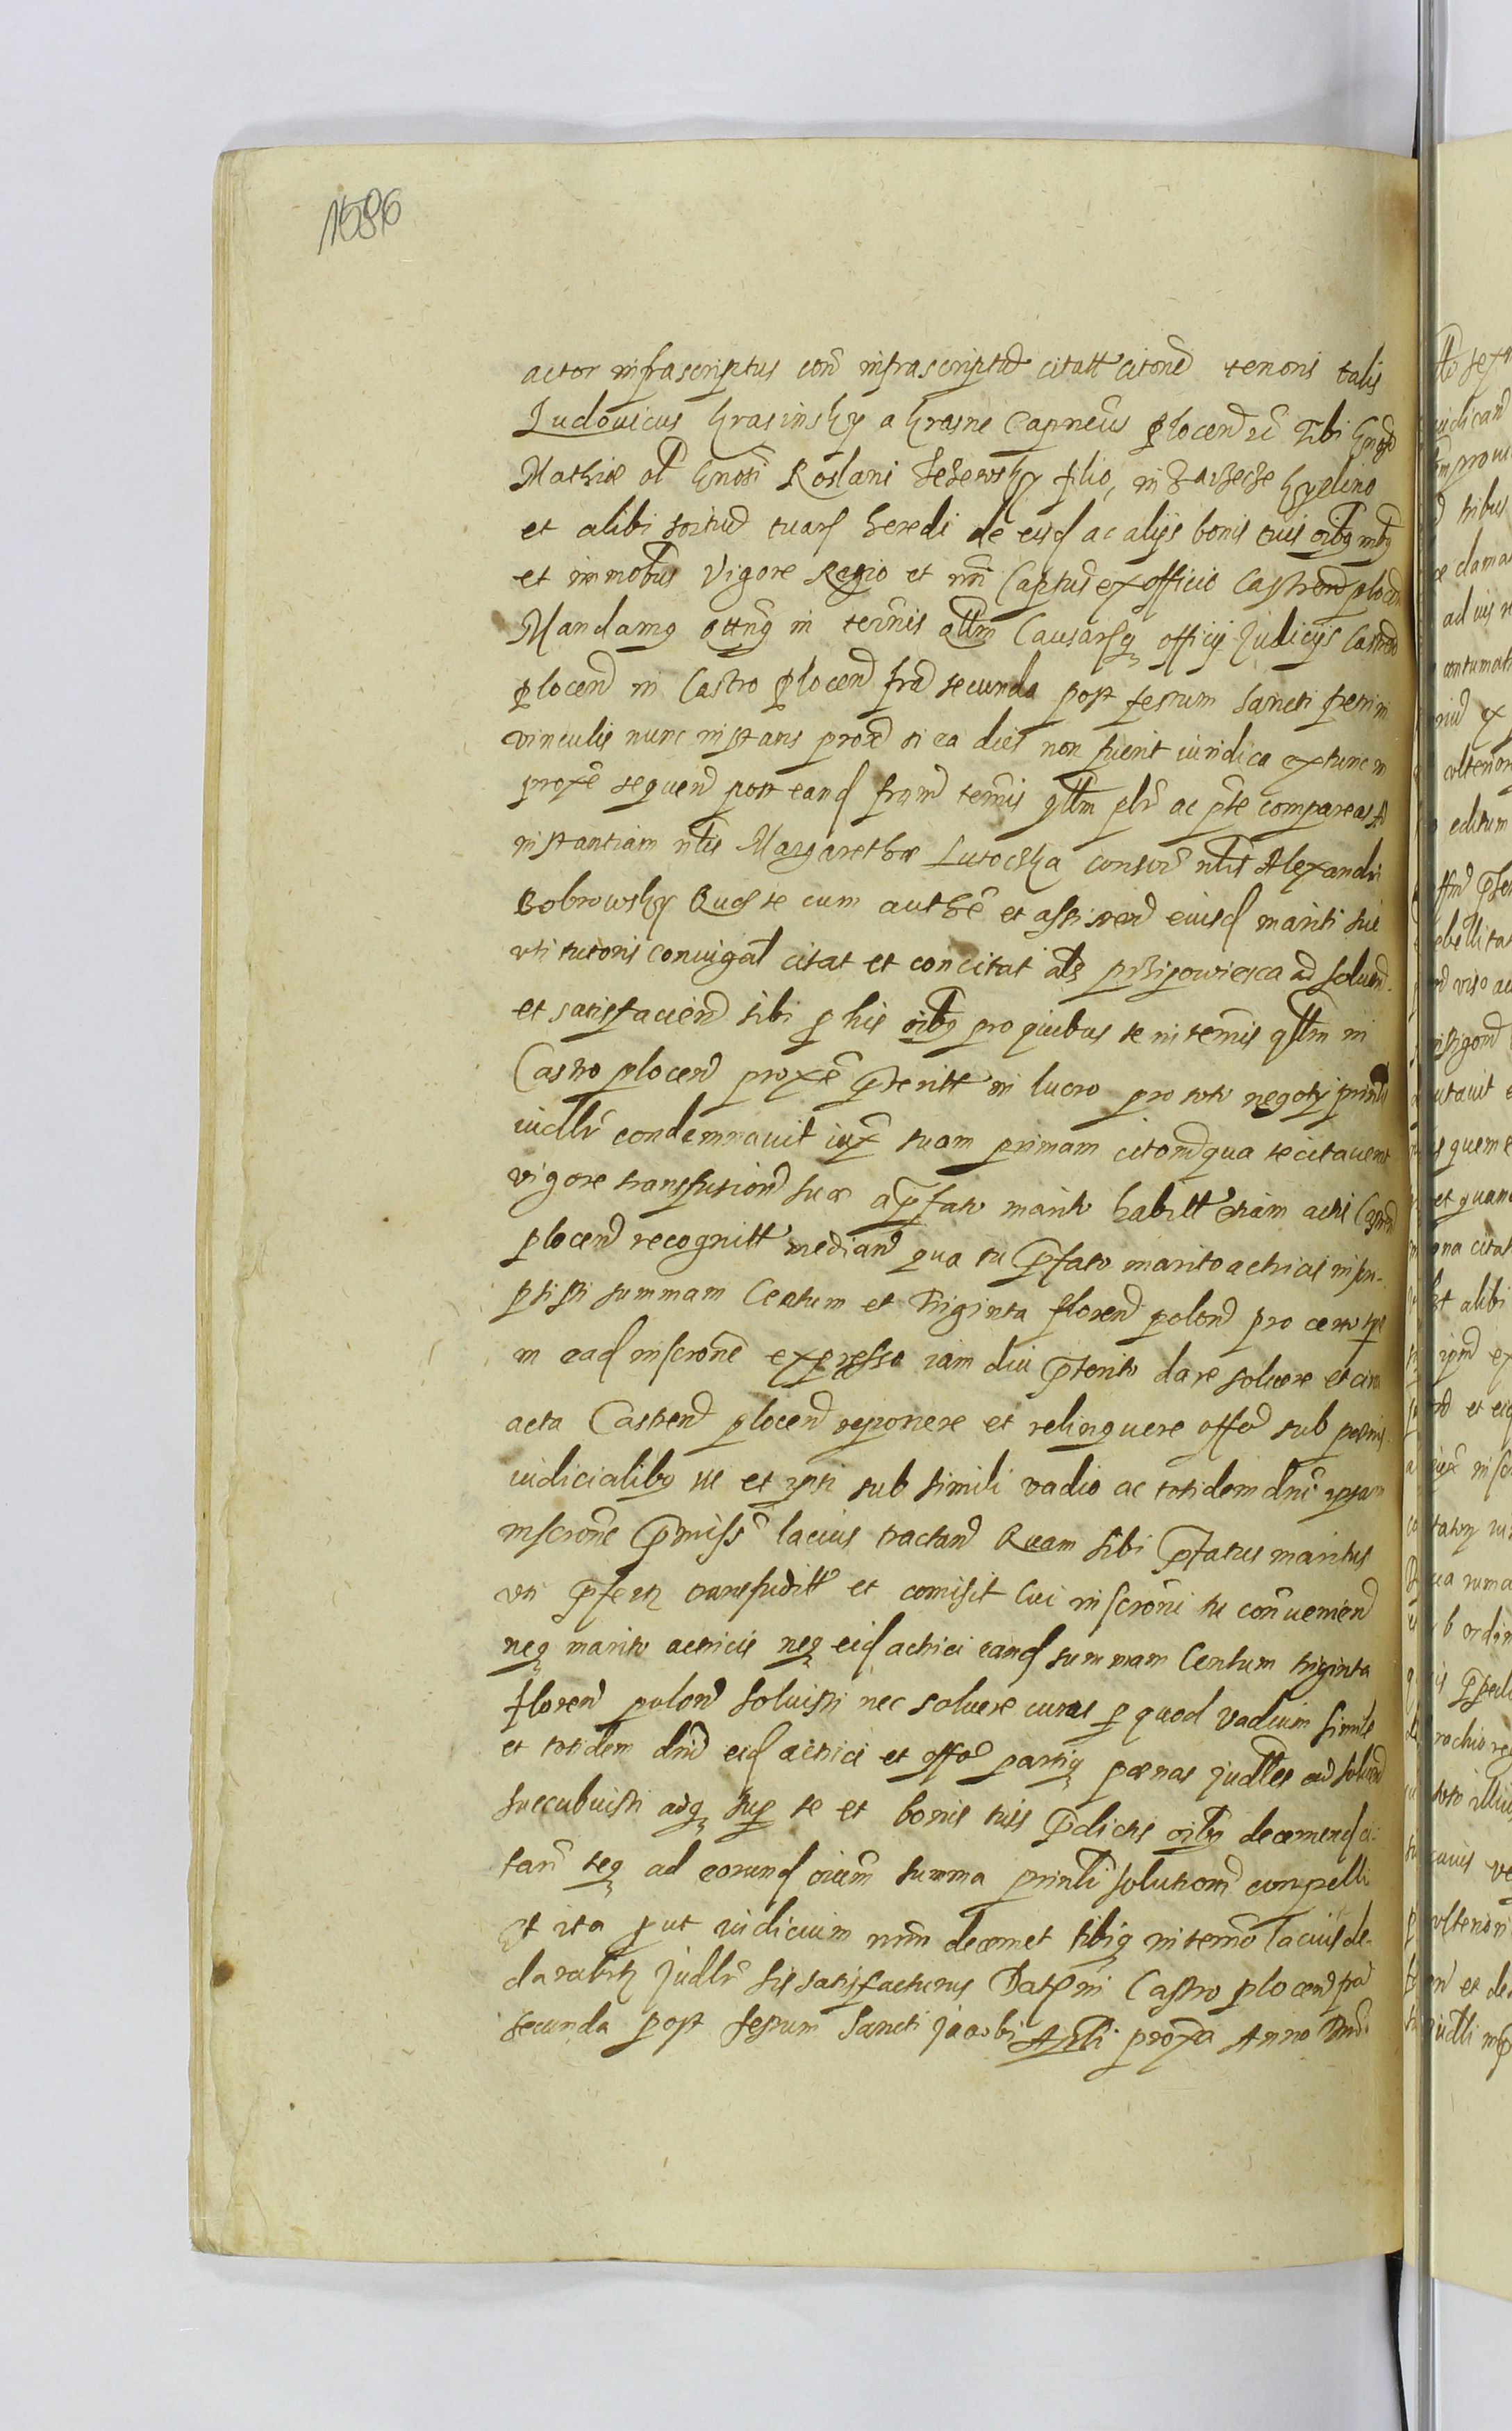 1586
actor infrascriptus con infrascriptu citatt citone tenoris talis
Ludovicus Krasinsky a Krasne Capneus plocen Tibi
Mathiæ ol Gnosi Roslani filio, in Kyelino
et alibi sortiu tuarz heredi de eisd ac alijs bonis tuis oibq mbq
et immobus Vigore Regio et nri Captus ex officio Castren plocen
Mandamq qttnq in terinis qllm Causarzq officij Judicijs Castren
plocen in Castro Plocen fria secunda post festum Sancti Petri in
vinculis nunc instans prox si ea dies non fuerit iuridica extunc in
proxe sequen post eand terinis qllm plr ac pte compareas ad
instantiam nlis Margarethæ Lutocka consor nlis Alexandri
Bobrowsky Quæ te cum authe et assisten eiusd mariti sui
vti tutoris coniugal citat et concitat als przipowiesca ad soluen
et satisfacien sibi p his oibq pro quibus te in terinis qllm in
Castro plocen proxe pteritt in lucro pro toto negoty prinli
iudllr condemnauit iux suam primam citone qua te citauerat
vigore transfusion suæ a pfato marito habitt etiam actis Castren
plocen recognitt median qua tu pfato marito actricis inscri-
psisti summam Centum et Triginta floren polon pro certo tpe
in ead inscrone expresso iam diu pterito dare soluere et circa
acta Castren plocen reponere et relinquere sub pænis
iudicialibq et sub simili vadio ac totidem dni ipsam
inscrone pmiss lacius tractan Quam sibi pfatus maritus
vti pfertz transfuditt et comisit Cui inscroni tu conuenien
neq marito actricis neq eid actrici eand summam Centum triginta
floren polon soluisti nec soluere curas p quod vadium simile
et totidem dni eid actrici et offo partiq pænas judlles ad soluen
succubuisti adq sup te et bonis tuis pdictis oibq decernend ci-
tari teq ad eorund oium summa prinli solutione compelli
Et ita put iudicium nrm decernet tibiq in termo lacius de-
clarabitz judllr sis satisfacturus Datz in Castro plocen fria
secunda post festum Sancti Jacobi Apli proxa Anno Dni